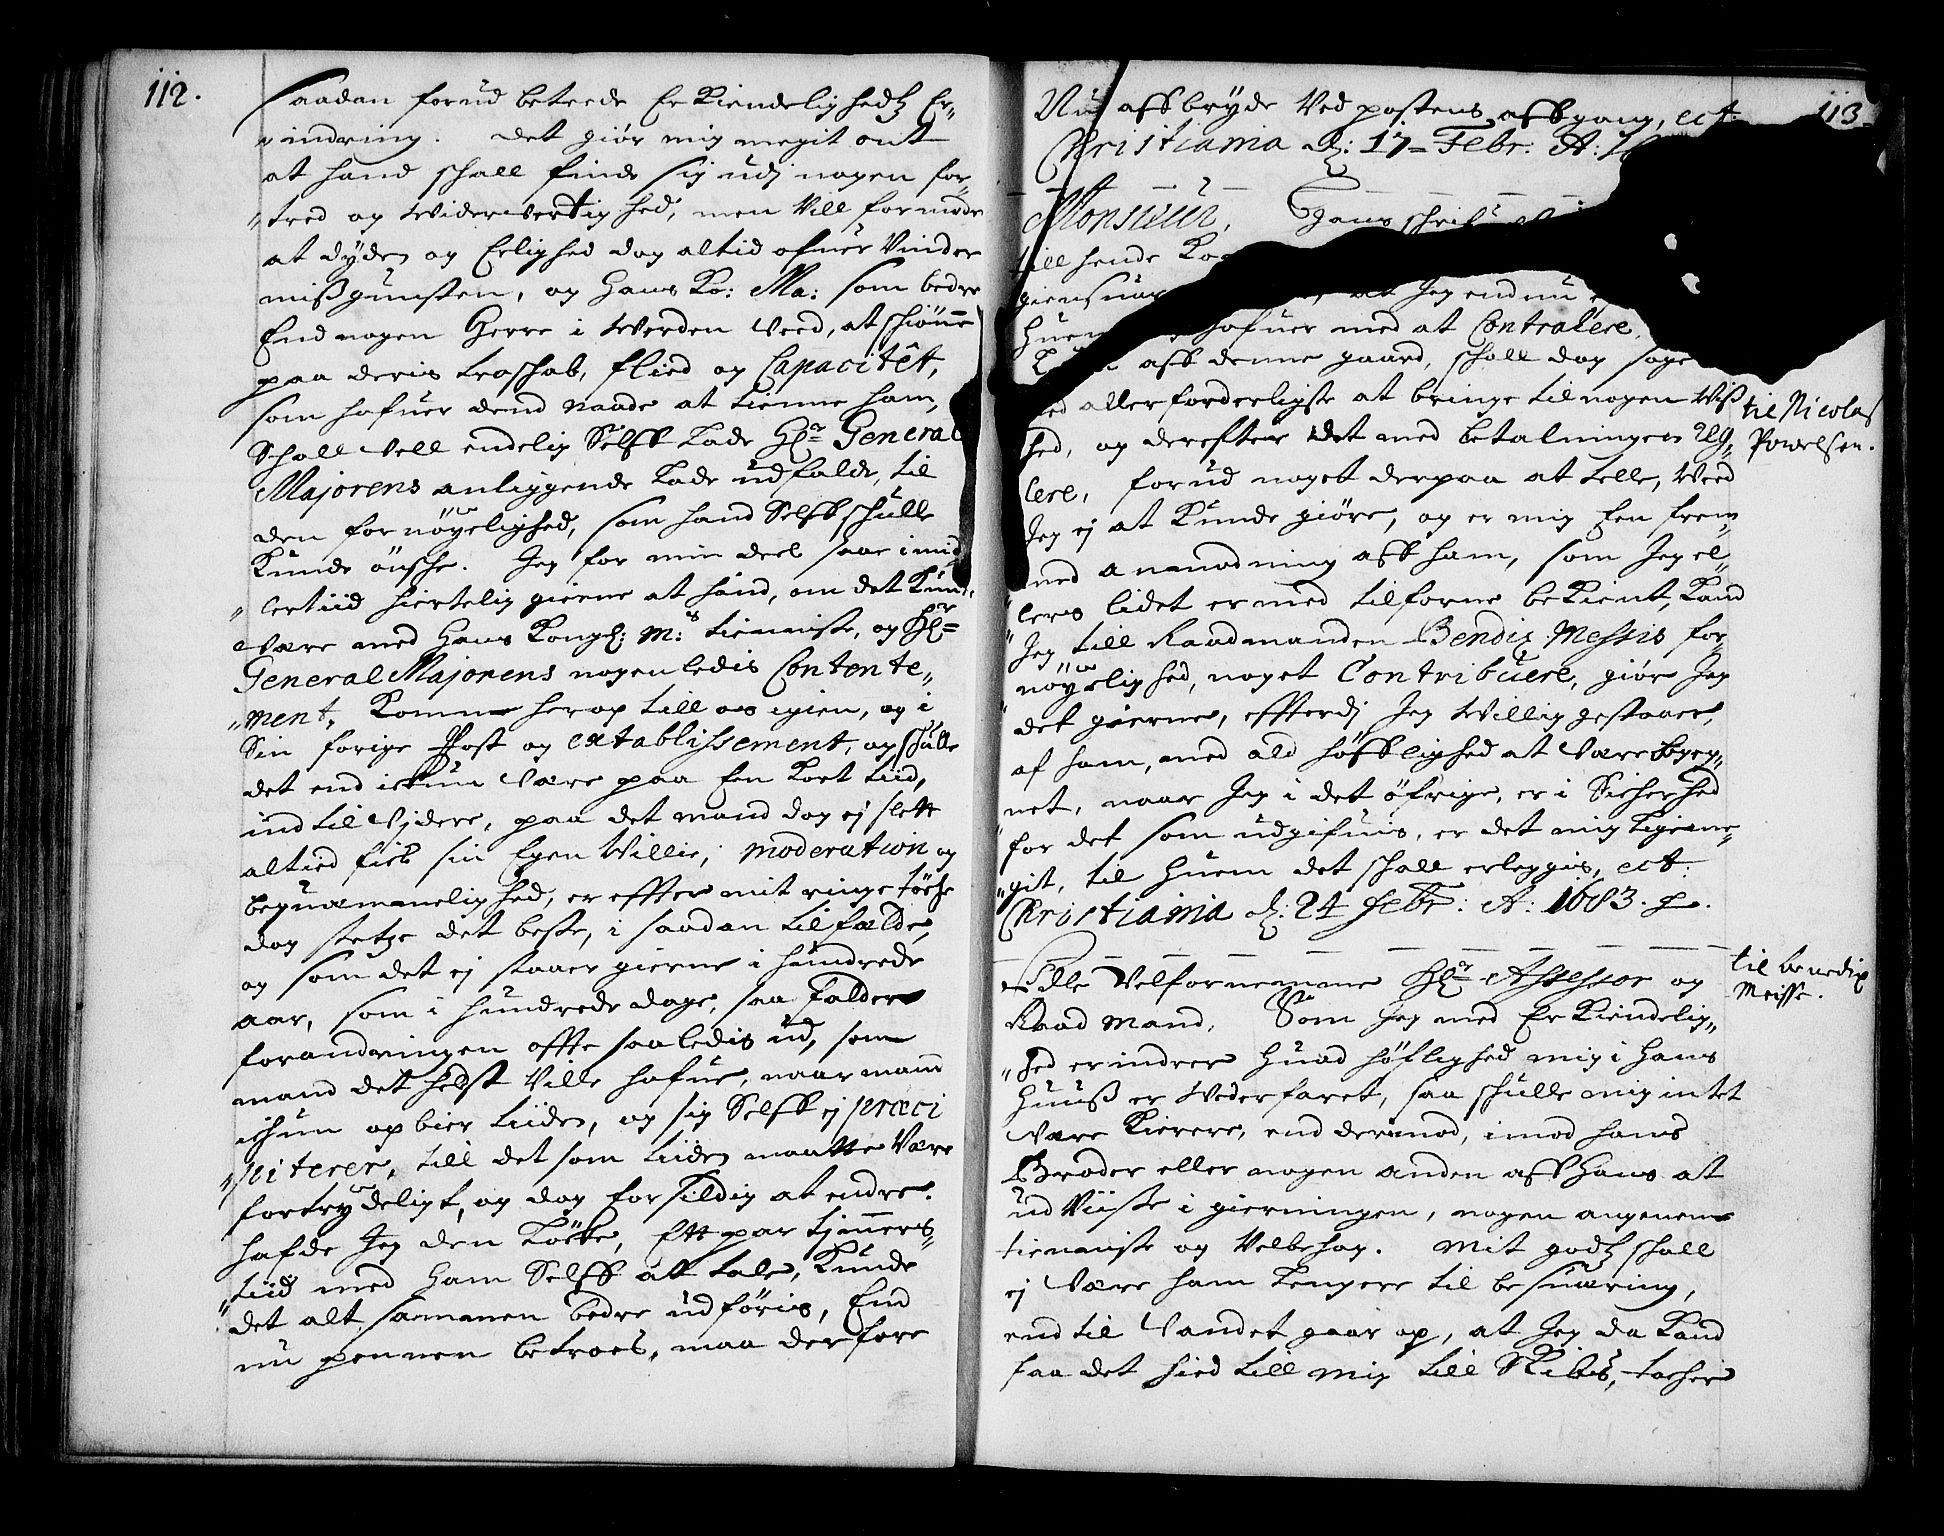 112.
saadan forud beteede Erkiendelighedz Er-
indring. Det giør mig megit ont
at hand schall finde sig udj nogen for-
„tred og widerwertighed, men Vill formode
at dyden og Erlighed dog altid ofuer Vinder
mißgunsten, og Hans Ko: Ma: som bedre
End nogen Herre i Werden Veed, at schiønne
paa deris troschab, flied og Capacitêt,
som hafuer dend naade at tienne ham,
Schall Vell endelig Selff Lade Hr General
Majorens anliggende Lade udfalde, til
den fornøyelighed, som hand Selff schulle
Kunde ønsche. Jeg for min deel saae imid
„lertiid hiertelig gierne at hand, om det Kunde
Være med Hans Kongl: M:s tienniste, og Hr
General Majorens nogenledis Contente„
„ment, Komme herop till os igien, og i
Sin forige Post og extablissement, og schulle
det end ickun Være paa Een Kort tiid,
indtil Vjdere, paa det mand dog ej slett
altied fick sin Egen Willie, moderation og
bequemmelighed, er effter mit ringe töcke
dog stetze det beste, i saadan tilfælde,
og som det ej staaer gierne i hundrede
aar, som i hundrede dage, saa falder
forandringen offte saaledis ud, som
mand det helst Ville hafue, naar mand
ichun opbier tiiden, og sig Selff ej præci
„piterer, till det som tiiden maatte Være
fortrydeligt, og dog forsildig at endre.
hafde Jeg den Löcke, Ett par tjmers„
„tiid med Ham Selff at tale, Kunde
det alt sammen bedre udføris, End
nu pennen betroes, maa derfore
113
Nu affbryde Ved postens affgang, ect
Christiania d: 17 = Febr: A: 16
Monsieur, Hans
till hende
giensuar Jeg endnu
huem hafuer med at Contralere,
aff denne gaard, schall dog søge
allerforderligste at bringe til nogen Wiß
hed, og derefter det med betalningen Reg„
lere, forud noget derpaa at telle, Weed
Jeg ej at Kunde giøre, og er mig Een frem„
med anmodning aff ham, som Jeg el„
lers lidet er med tilforne bekient, Kand
Jeg till Raadmanden Bendix Messis for„
nöyelighed, noget Contribuere, giør Jeg
det gierne, effterdj Jeg Willig gestaaer,
af ham, med ald höfflighed at Være begeg„
net, naar Jeg i det öfrige, er i Sicherhed
for det som udgifuis, er det mig ligeme„
„git, til Huem det schall erleggis, ect.
Christiania d: 24 Febr: A: 1683.
til Nicolas
Powelsen.
Edle Velfornemme Hr Assessor og
Raad Mand, Som Jeg med Erkiendelig„
„hed erindrer huad höflighed mig i Hans
Huuß er Wederfaret, saa schulle mig intet
Være Kierere, end derimod, imod hans
Broder eller nogen anden aff Hans at
udViiste i gierningen, nogen angenem
tienniste og Velbehag. Mit godz schall
ej Være ham Lengere til besuæring,
end til Vandet gaar op, at Jeg da Kand
faa det hied till mig till Skibs, tacker
til benedix
Meisse.